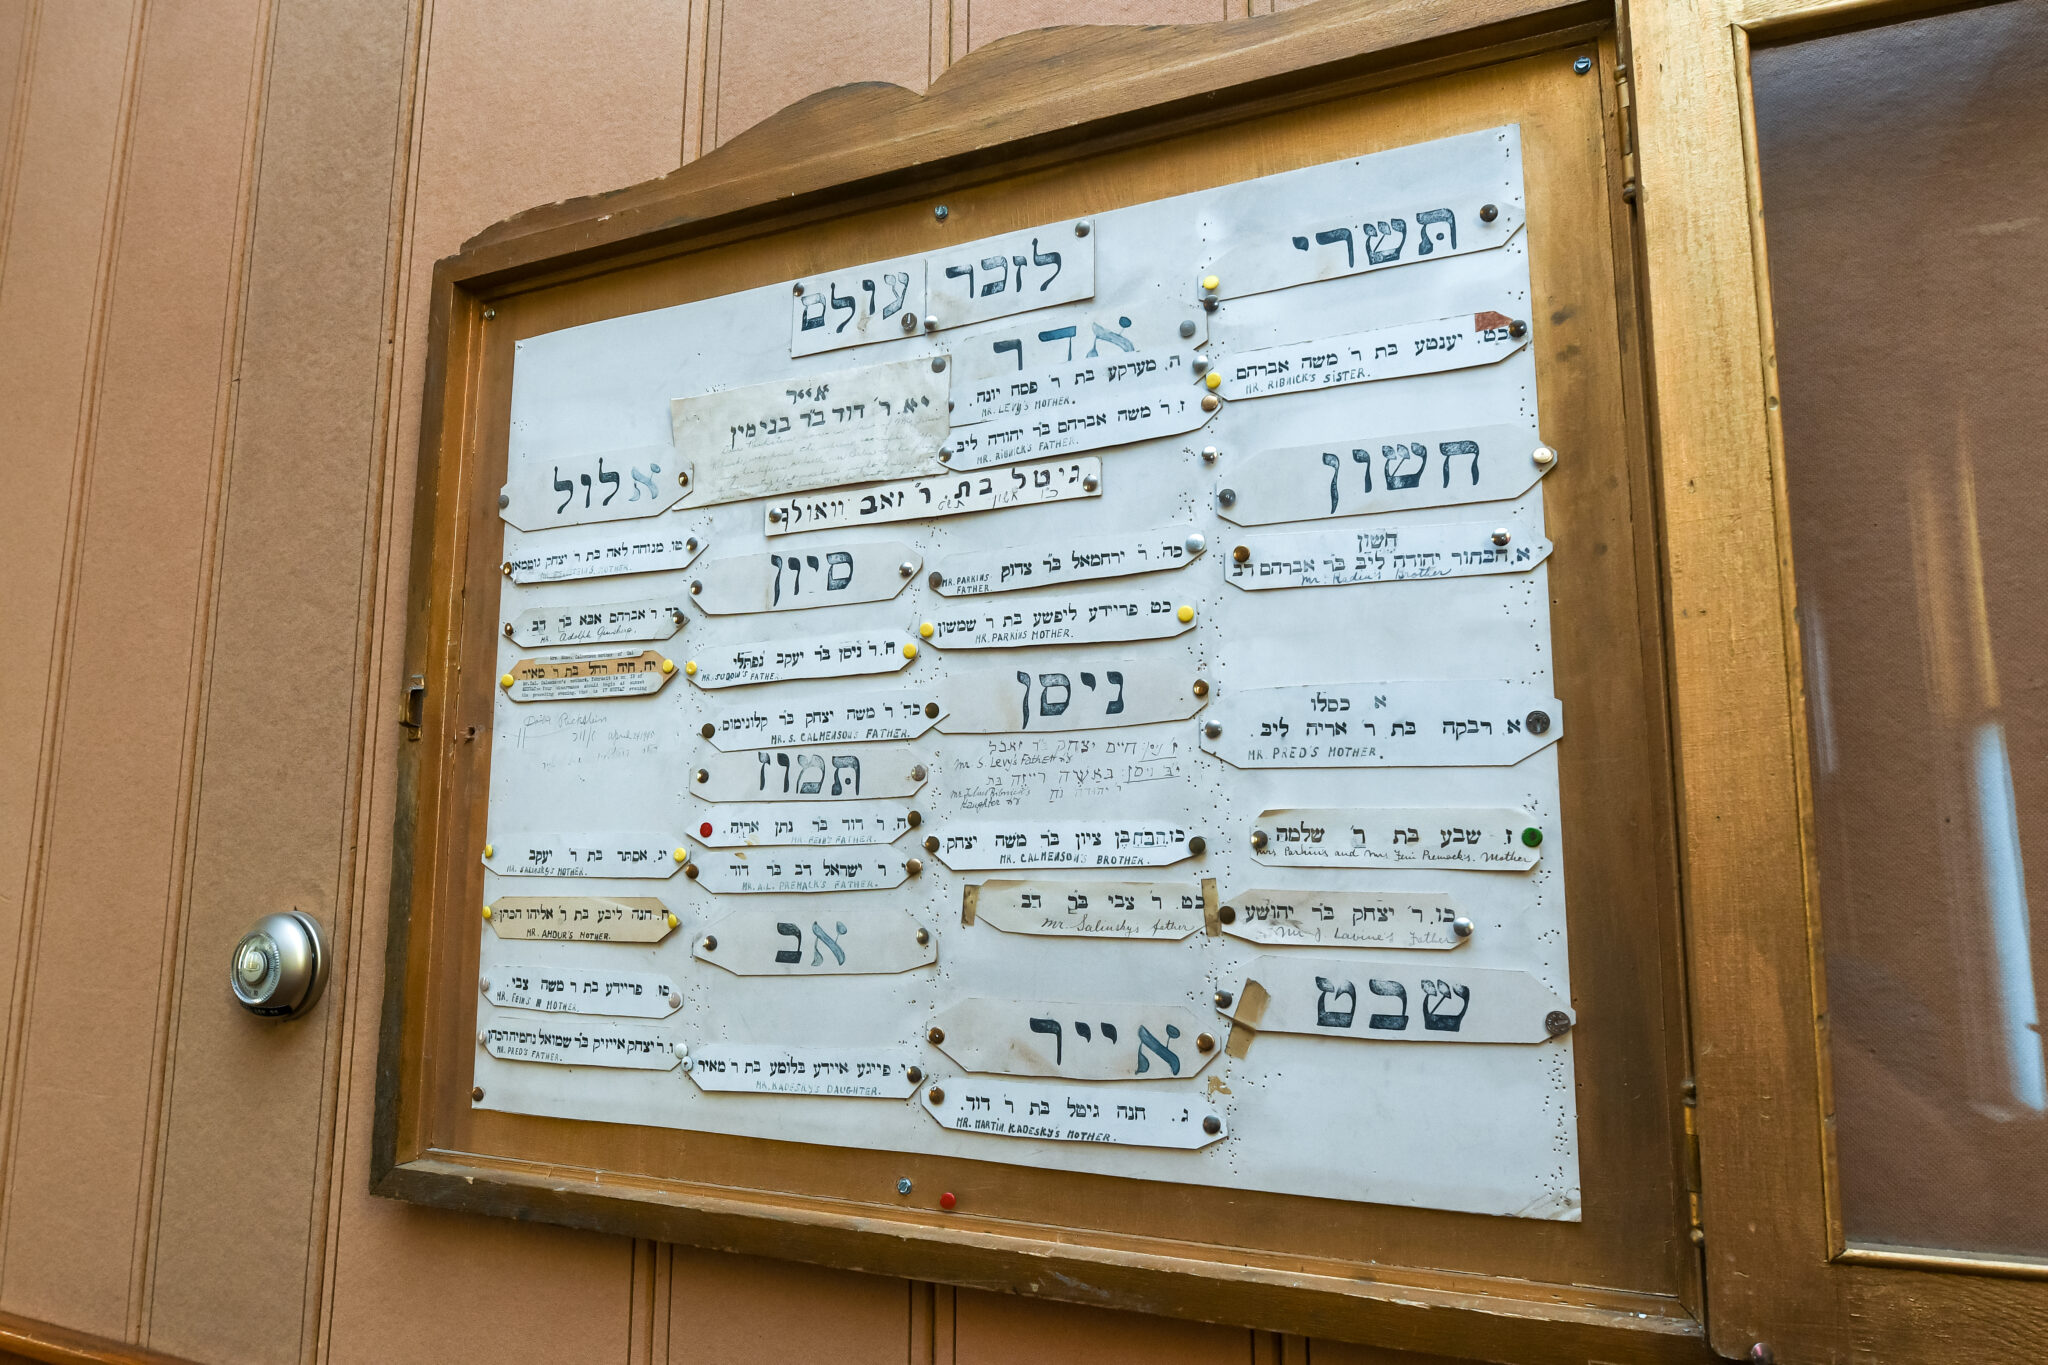 לזכר עולם
תשרי
כט. יענטע בת ר' משה אברהם.
MR. RIBNICK'S SISTER.
חשון
חשון
א. הבחור יהודה ליב בר אברהם דב
Mr. Kaden's Brother
א כסלו
א רבקה בת ר' אריה ליב.
MR. PRED'S MOTHER.
ז שבע בת ר' שלמה
Mrs Parkins and Mrs Premack's Mother
כו. ר' יצחק בר יהושע
Mr J. Lavine's Father
שבט
אדר
ה. מערקע בת ר' פסח יונה.
MR. LEVY'S MOTHER.
ז. ר' משה אברהם בר יהודה ליב.
MR. RIBNICK'S FATHER.
גיטל בת ר' זאב וואולף
כה. ר' ירחמאל בר צדוק
MR. PARKINS FATHER.
כט פריידע ליפשע בת ר' שמשון
MR. PARKINS MOTHER.
ניסן
ניסן חיים יצחק
Mr S. Levy's Father
י"ב ניסן באשה רייזה בת
ר' יהודה נח
Daughter
כז. הבח בן ציון בר משה יצחק.
MR. CALMENSON'S BROTHER.
כט. ר' צבי בר דב
Mr. Salinsky's father
אייר
ג. חנה גיטל בת ר' דוד.
MR. MARTIN KADESKY'S MOTHER.
אייר
יא. ר' דוד בר בנימין
סיון
ח. ר' ניסן בר יעקב נפתלי
MR. SUDOW'S FATHER.
כד. ר' משה יצחק בר קלונימוס.
MR. S. CALMENSONS FATHER.
תמוז
ה. ר' דוד בר נתן אריה.
MR. FEIN'S FATHER.
י ר' ישראל דב בר דוד
MR. A.L. PREMACK'S FATHER.
אב
י. פייגע איידע בלומע בת ר' מאיר
MR. KADESKY'S DAUGHTER.
אלול
טו. מנוחה לאה בת ר' יצחק
MOTHER.
כד. ר' אברהם אבא בר דב.
MR. Adolph
יח. חיה רחל בת ר' מאיר.
April
יג. אסתר בת ר' יעקב
MR. SALINSKY'S MOTHER.
ח. חנה ליבע בת ר' אליהו הכהן
MR. AMDUR'S MOTHER.
טז. פריידע בת ר' משה צבי.
MR. FEIN'S MOTHER.
ו. ר' יצחק אייזיק בר שמואל נחמיה הכהן
MR. PRED'S FATHER.